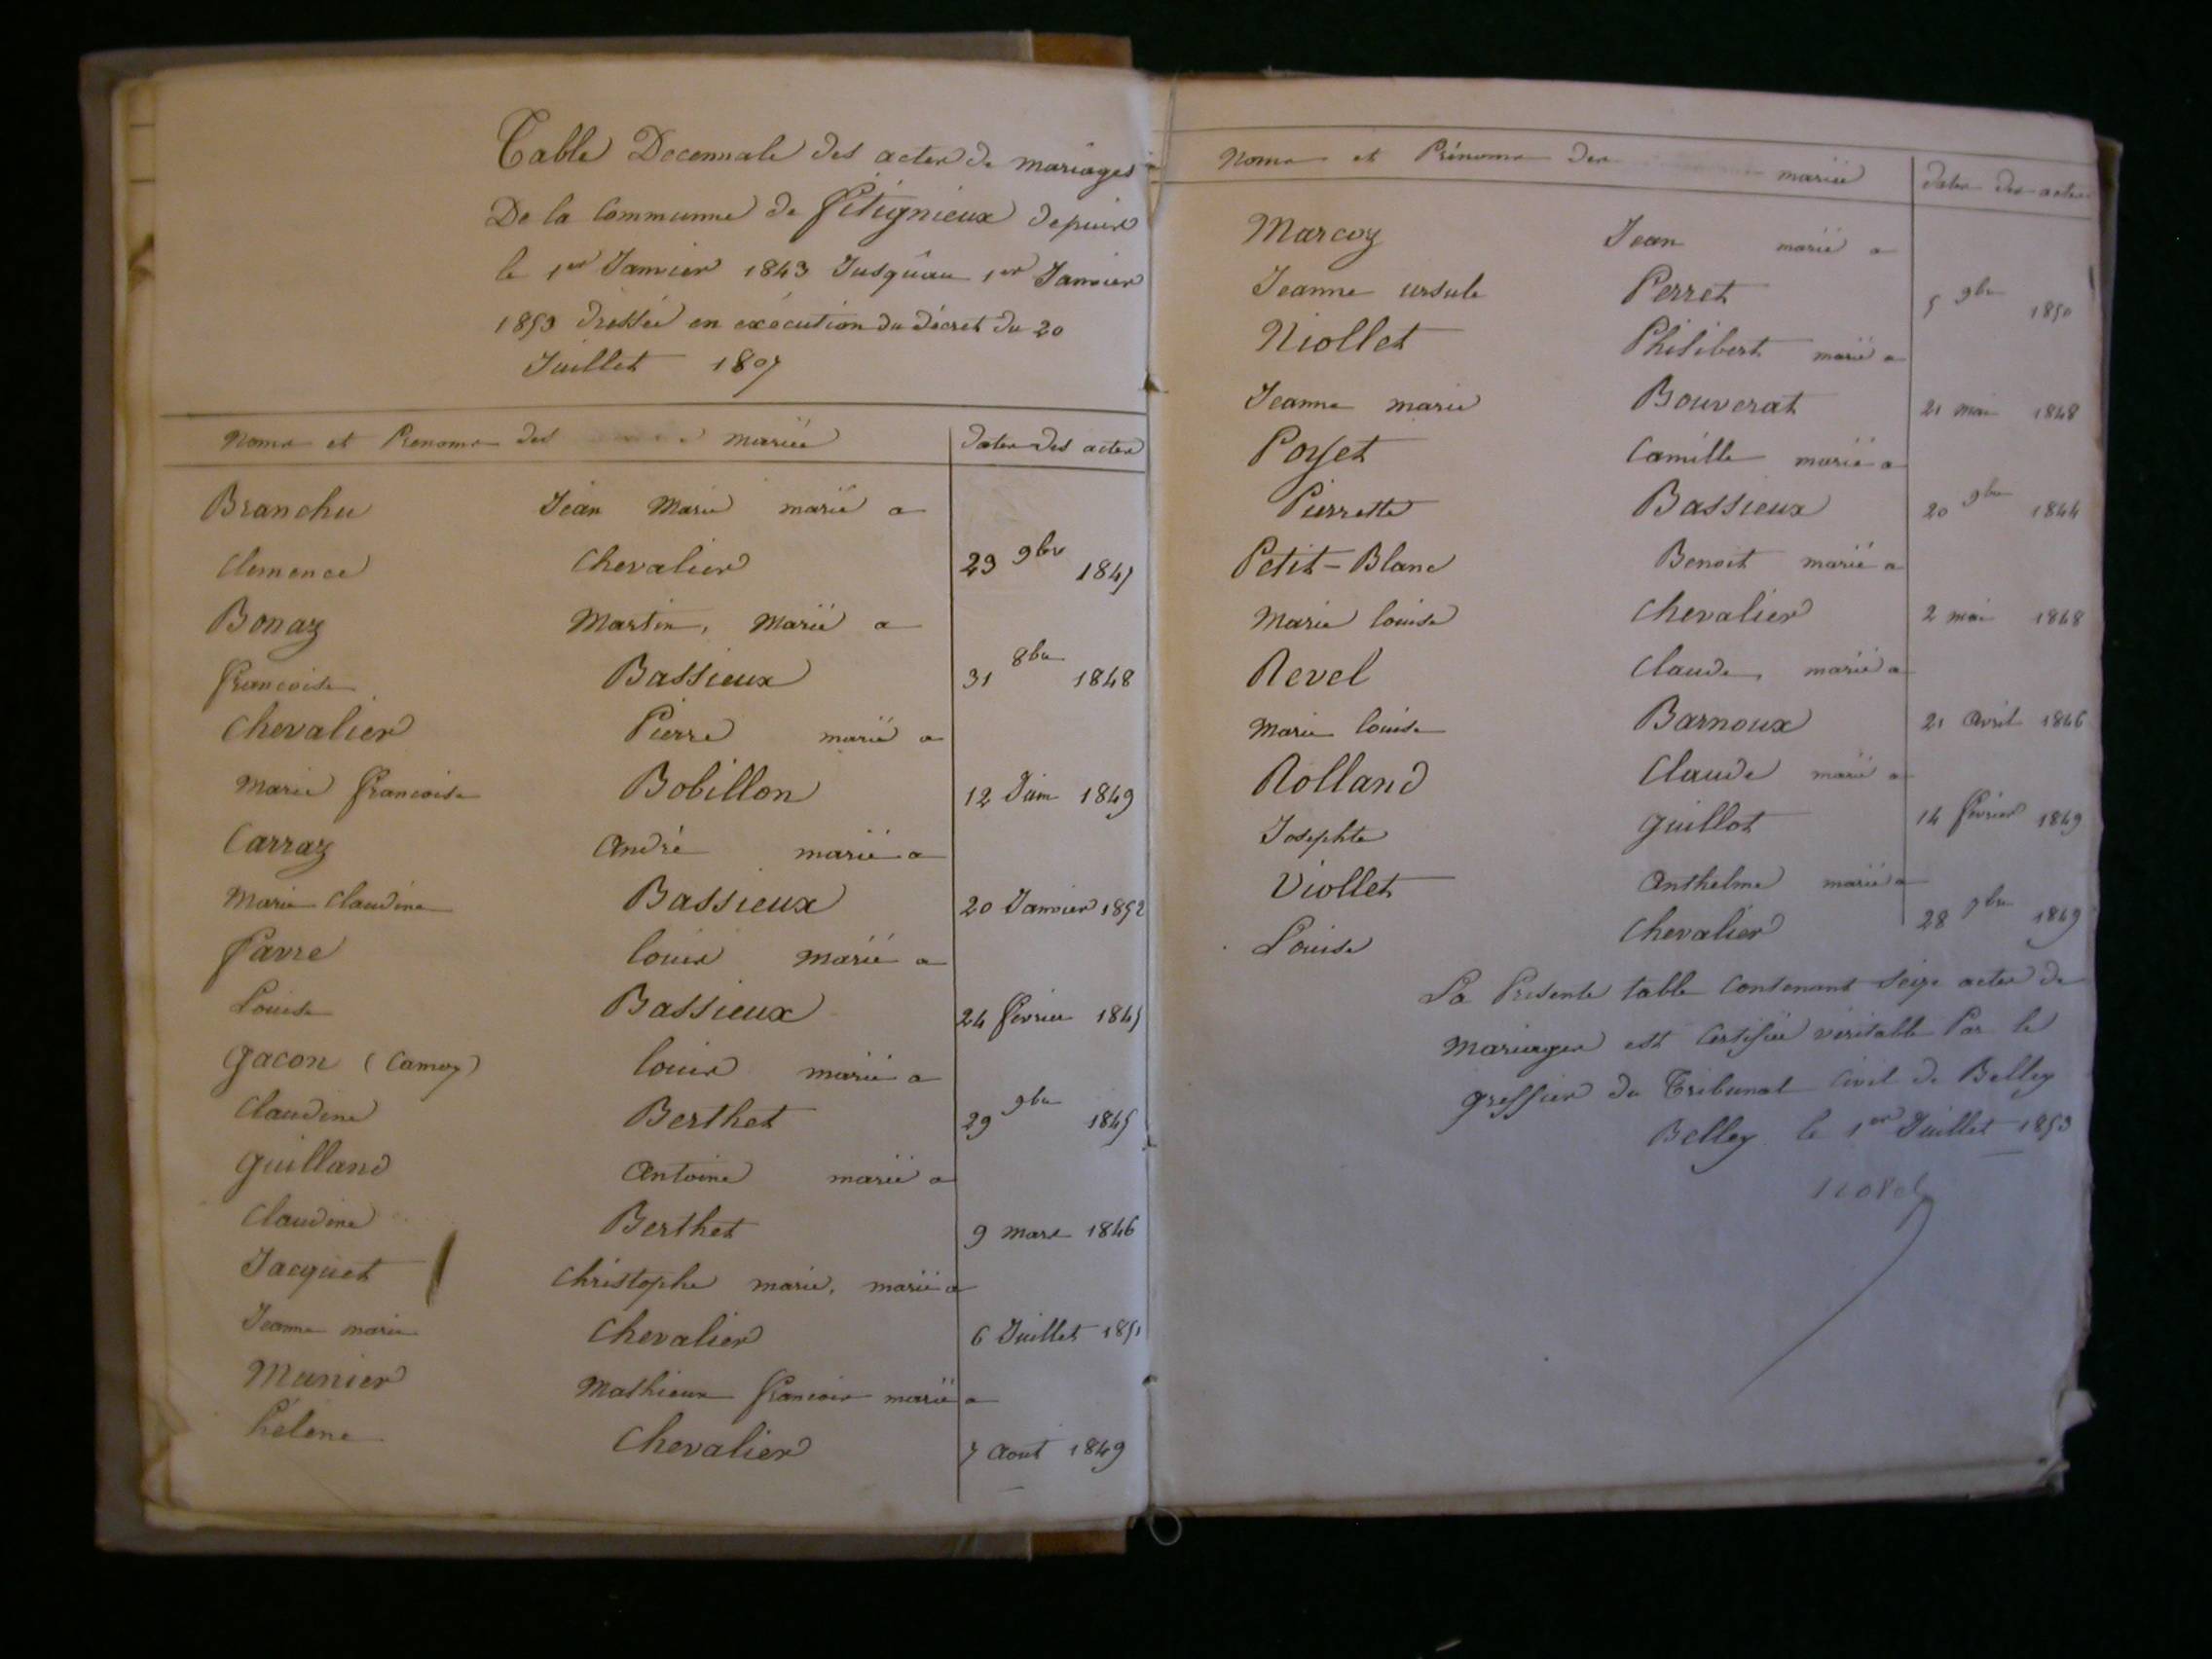 Table Decennale des actes de mariages
De la Commune de Pétignieux depuis
le 1er Janvier 1843 Jusqu'au 1er Janvier
1853 dressée en exécution du décret du 20
Juillet 1807
Noms et Prenoms des mariés
Dates des actes
Branchu Jean Marie marié a
Clemence Chevalier 23 9bre 1847
Bonaz Martin, Marié a
francoise Bassieux 31 8bre 1848
Chevalier Pierre marié a
Marie francoise Bobillon 12 Juin 1849
Carraz André marié a
Marie Claudine Bassieux 20 Janvier 1852
favre louis Marié a
Louise Bassieux 24 fevrier 1845
gacon (Camoz) louis marié a
Claudine Berthet 29 9bre 1845
guilland Antoine marié a
Claudine Berthet 9 mars 1846
Jacquet Christophe marie, marié a
Jeanne marie Chevalier 6 Juillet 1851
Munier Mathieux francois marié a
hélène Chevalier 7 Aout 1849
Noms et Prénoms des mariés
dates des actes
Marcoz Jean marié a
Jeanne ursule Perret 5 9bre 1850
Niollet Philibert marié a
Jeanne marie Bouverat 21 mai 1848
Poyet Camille marié a
Pierrette Bassieux 20 9bre 1844
Petit-Blanc Benoit marié a
Marie louise Chevalier 2 mai 1848
Revel Claude, marié a
Marie louise Barnoux 21 Avril 1846
Rolland Claude marié a
Josephte guillot 14 février 1849
Viollet Anthelme marié a
Louise Chevalier 28 9bre 1849
La Présente table Contenant Seize actes de
Mariages est Certifiée véritable Par le
greffier du Tribunal Civil de Belley
Belley le 1er Juillet 1853